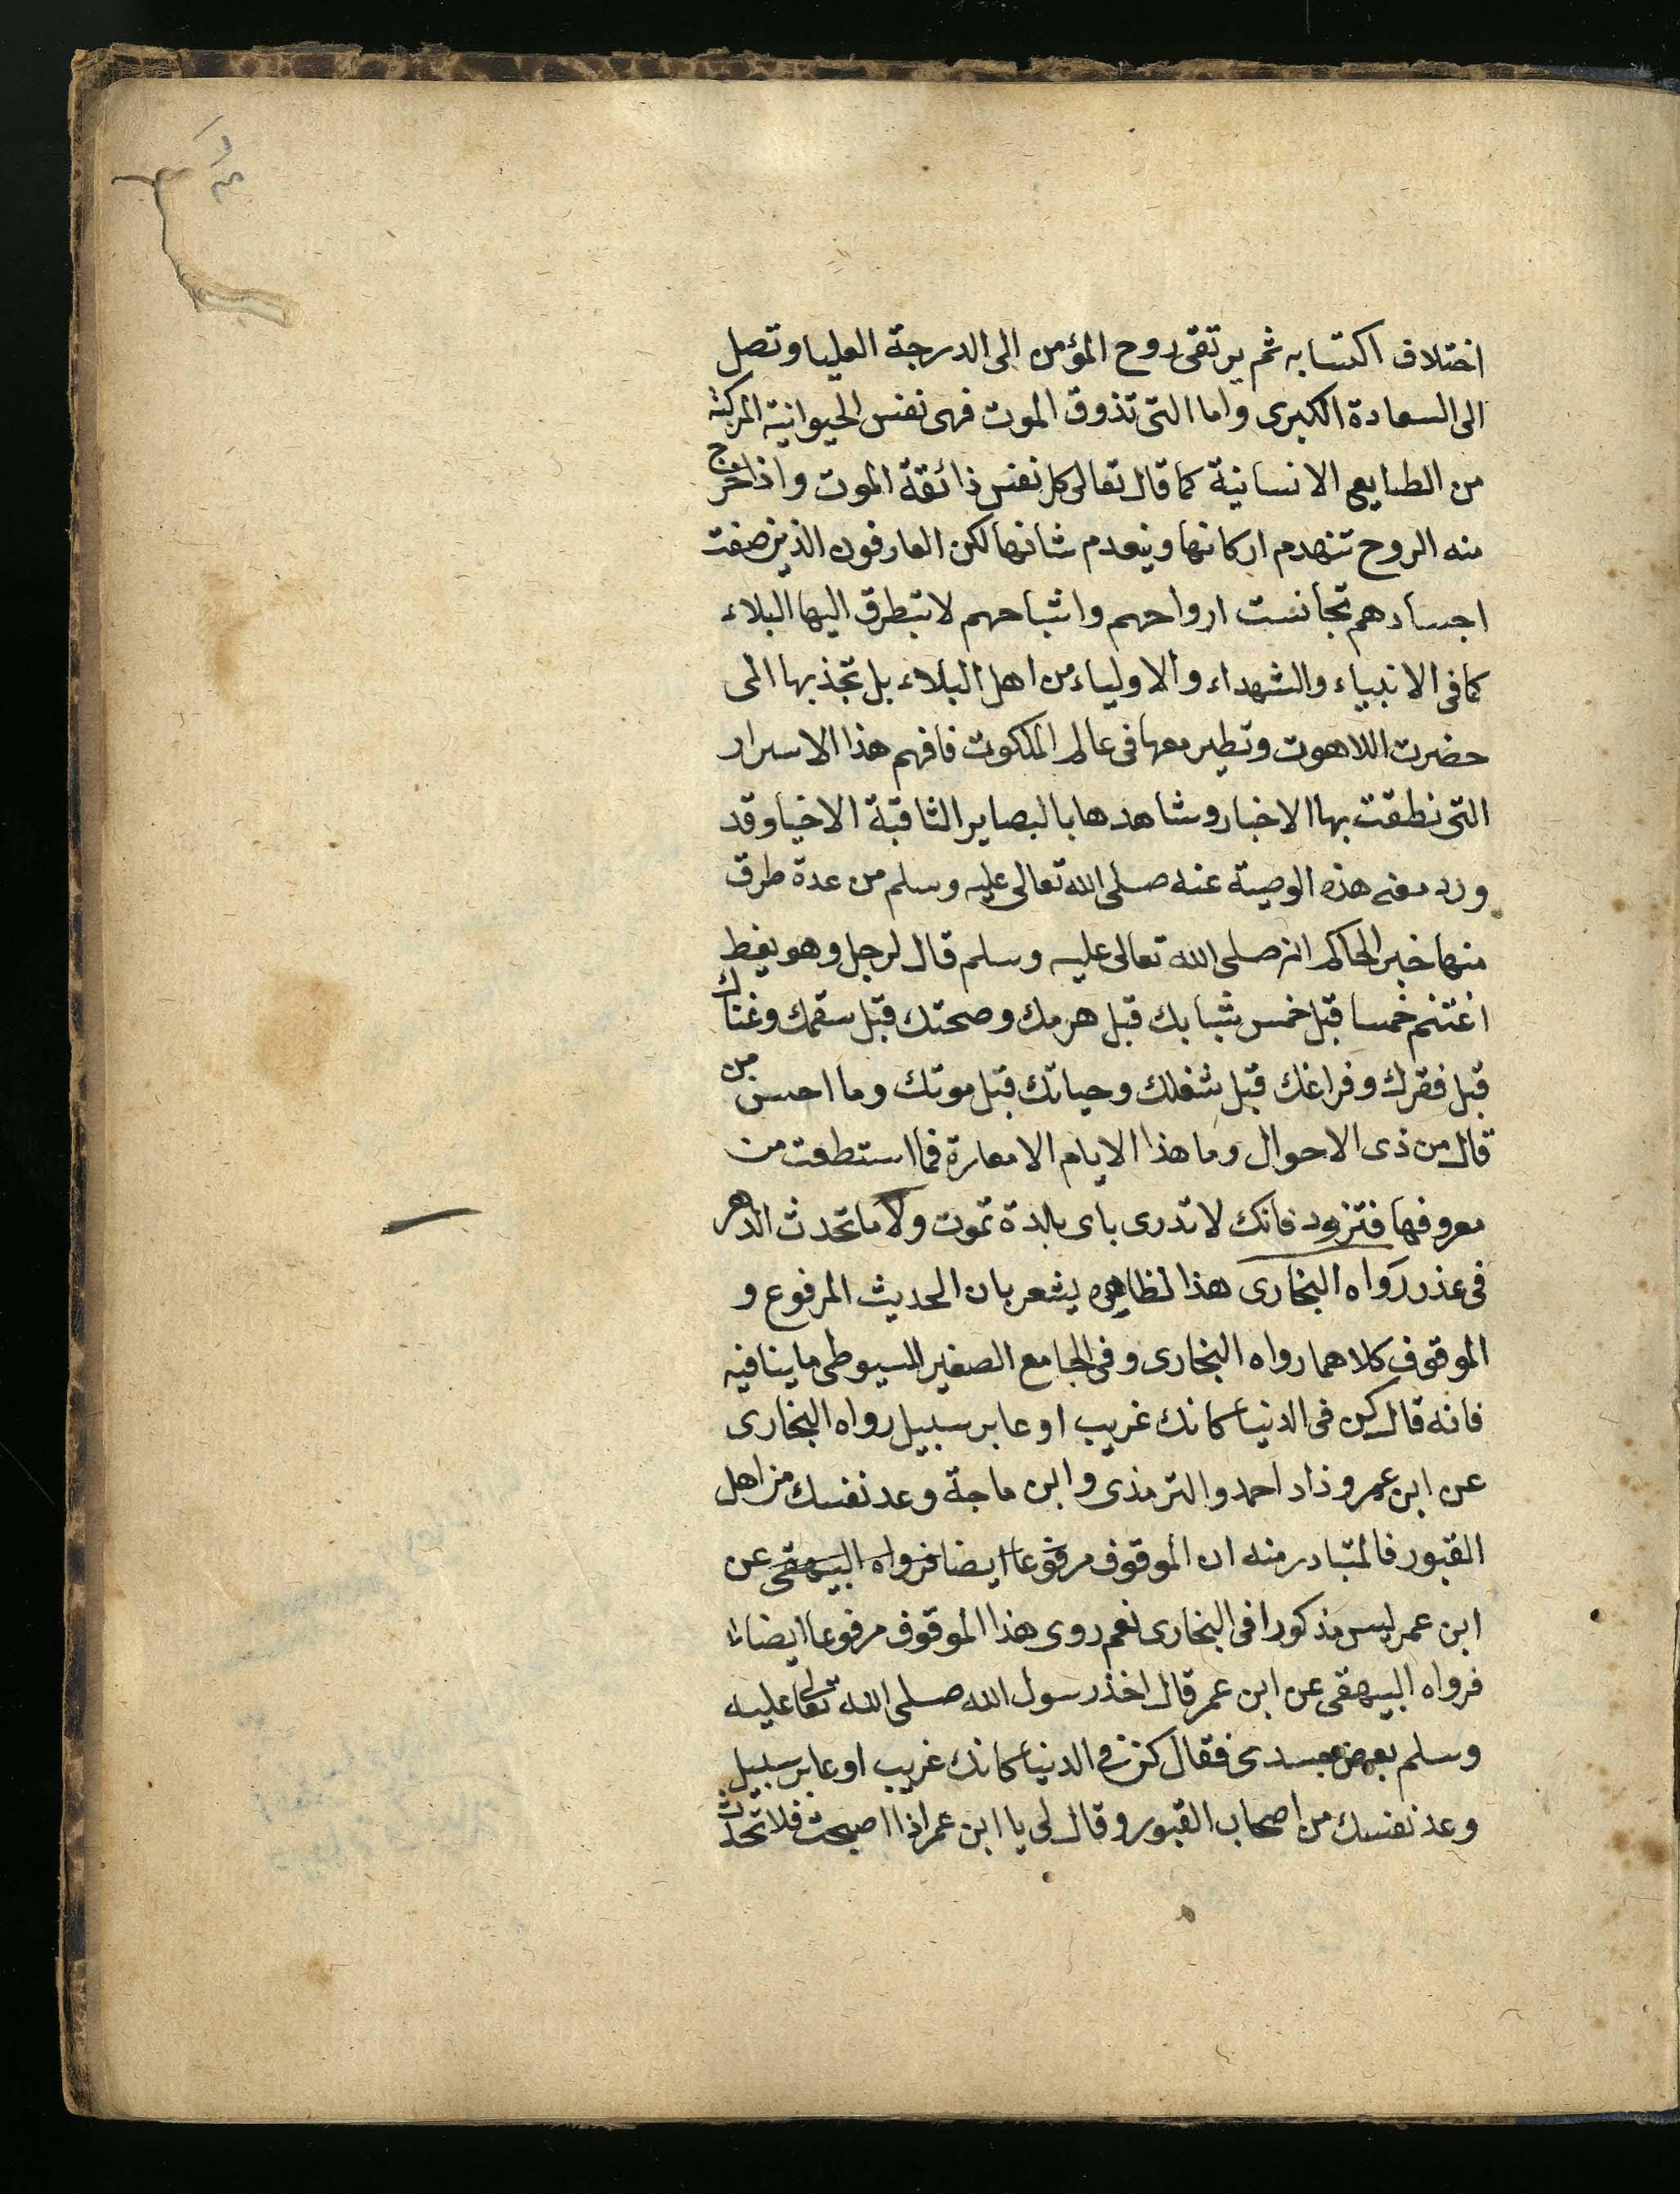 اختلاف اكتسابه ثم يرتقى روح المؤمن الى الدرجة العليا وتصل
الى السعادة الكبرى واما التى تذوق الموت فهى نفس الحيوانية المركبة
من الطبايع الانسانية كما قال تعالى كل نفس ذائقة الموت واذا خرج
منه الروح تنهدم اركانها وينعدم شانها لكن العارفون الذين صفت
اجسادهم تجانست ارواحهم واشباحهم لا تبطرق اليها البلاء
كما فى الانبياء والشهداء والاولياء من اهل البلاء بل تجذبها الى
حضرت اللاهوت وتطير معها فى عالم الملكوت فافهم هذا الاسرار
التى نطقت بها الاخبار وشاهدها بالبصاير الثاقبة الاخيا وقد
ورد معنى هذه الوصية عنه صلى الله تعالى عليه وسلم من عدة طرق
منها خبر الحاكم انه صلى الله تعالى عليه وسلم قال لرجل وهو يعظ
اغتنم خمسا قبل خمس شبابك قبل هرمك وصحتك قبل سقمك وغناك
قبل فقرك وفراغك قبل شغلك وحياتك قبل موتك وما احسن من
قال من ذى الاحوال وما هذا الايام الا معارة فما استطعت من
معروفها فتزود فانك لا تدرى باى بلدة تموت ولا ما تحدث الدهر
فى عذر رواه البخارى هذا لظاهره يشعر بان الحديث المرفوع و
الموقوف كلاهما رواه البخارى وفى الجامع الصغير للسيوطى ما ينافيه
فانه قال كن فى الدنيا كانك غريب او عابر سبيل رواه البخارى
عن ابن عمر وزاد احمد والترمذى وابن ماجة وعد نفسك من اهل
القبور فالمتبادر منه ان الموقوف مرفوعا ايضا فرواه البيهقى عن
ابن عمر ليس مذكورا فى البخارى نعم روى هذا الموقوف مرفوعا ايضا
فرواه البيهقى عن ابن عمر قال اخذ رسول الله صلى الله تعالى عليه
وسلم بعض جسدى فقال كن فى الدنيا كانك غريب او عابر سبيل
وعد نفسك من اصحاب القبور وقال لى يا ابن عمر اذا اصبحت فلا تحدث